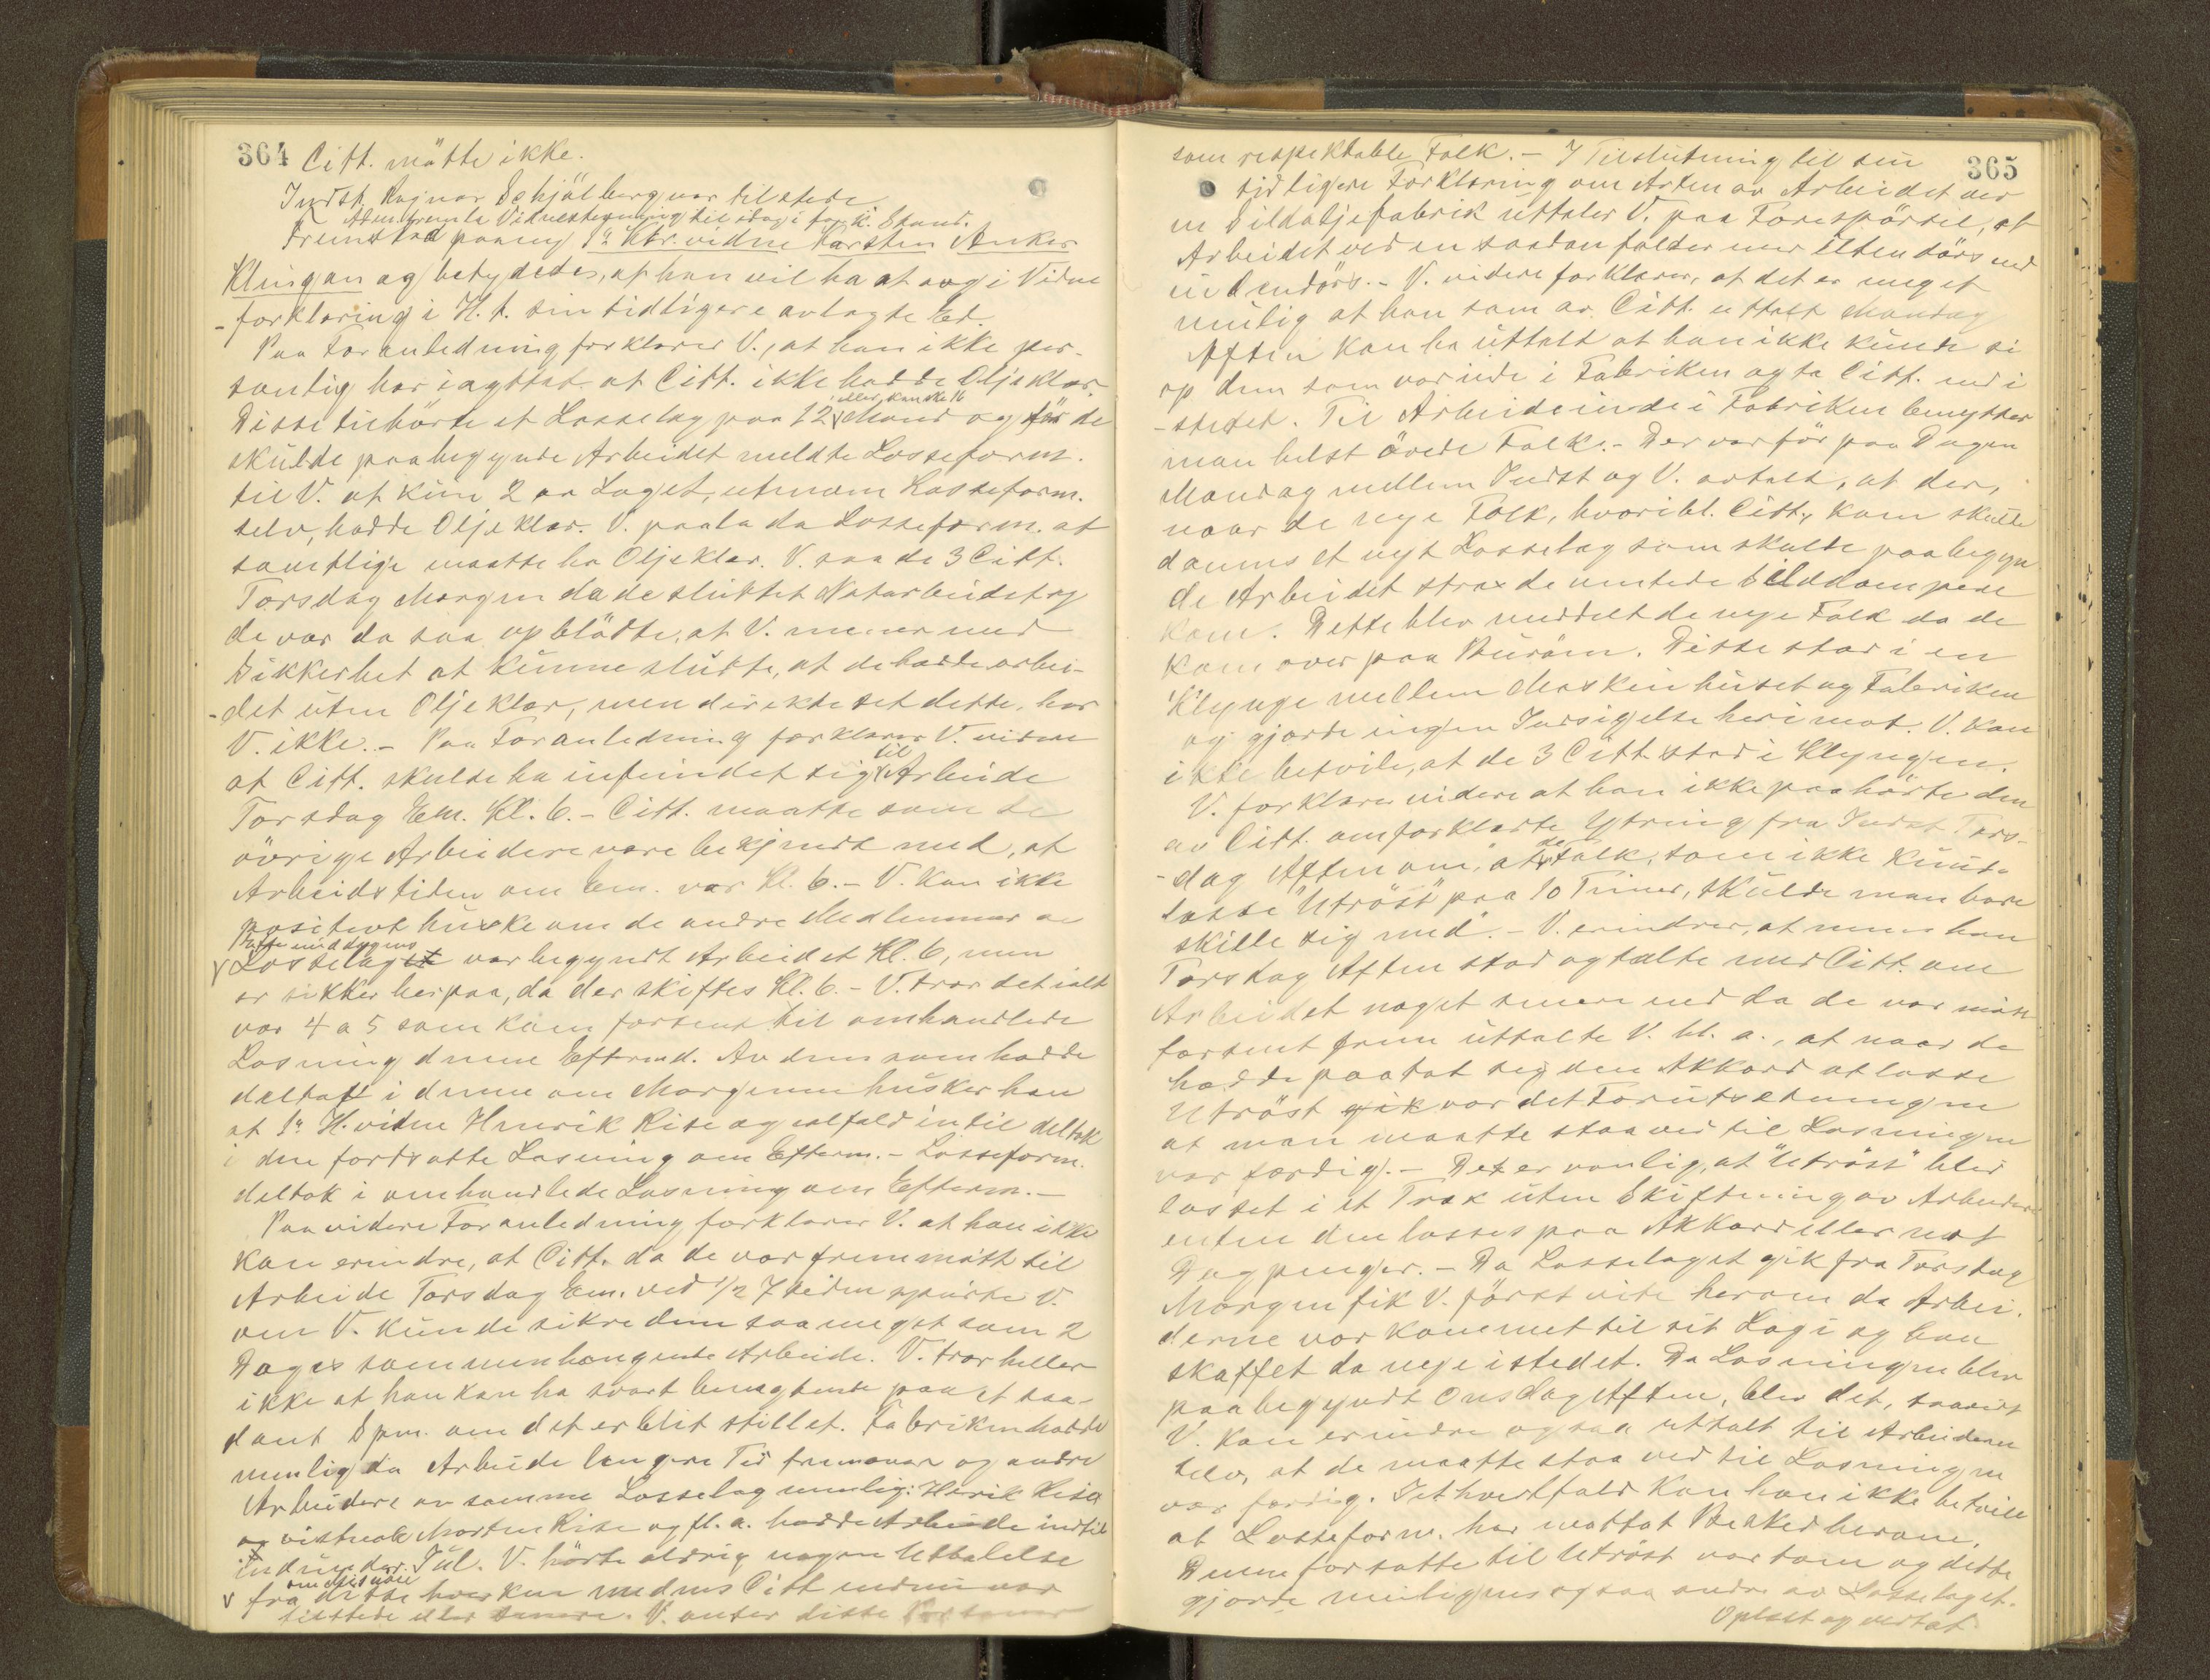 364 Citt. mötte ikke.
Indst. Ragnar Schjölberg var tilstede
Aten gamle Vidnestevning til idag i fork. Stand.
Fremstod paany 1ste H.kr. vidne Karsten Anker
Klingan og betydedes, at han vil ha at avgi Vidne
-forklaring i H. t. sin tidligere avlagte Ed.
Paa Foranledning forklarer V., at han ikke per-
sonlig har iagttat at Citt. ikke hadde Oljeklær.
Disse tilhörte et Losselag paa 12 eller kanske 16 Mand og för de
skulde paabegynde Arbeidet meldte Losseform.
til V. at kun 2 av Laget, utenom Losseform.
selv, hadde Oljeklær. V. paala da Losseform. at
samtlige maatte ha Oljeklær. V. saa de 3 Citt.
Torsdag Morgen da de sluttet Natarbeidet og
de var da saa opblödte, at V. mener med
Sikkerhet at kunne slutte, at de hadde arbei-
-det uten Oljeklær, men direkte set dette, har
V. ikke. - Paa Foranledning forklarer V. videre
at Citt. skulde ha infundet sig til Arbeide
Torsdag Em. Kl. 6. - Citt. maatte som de
övrige Arbeidere være bekjendt med, at
Arbeidstiden om Em. var Kl. 6. - V. kan ikke
positivt huske om de andre Medlemmer av
Eftermiddagens
Losselaget var begyndt Arbeidet Kl. 6, men
er sikker herpaa, da der skiftes Kl. 6. - V. tror det ialt
var 4 a 5 som kom forsent til omhandlede
Losning denne Eftermd. Av dem som hadde
deltatt i denne om Morgenen husker han
at 1ste H. vidne Henrik Rise og ialfald en til deltok
i den fortsatte Losning om Efterm. - Losseform.
deltok i omhandlede Losning om Efterm. -
Paa videre Foranledning forklarer V. at han ikke
kan erindre, at Citt. da de var fremmött til
Arbeide Torsdag Em. ved 1/2 7 tiden spurte V.
om V. kunde sikre dem saa meget som 2
Dages sammenhengende Arbeide. V. tror heller
ikke at han kan ha svart benegtende paa et saa-
dant Spm. om det er blit stillet. Fabriken hadde
nemlig da Arbeide længere Tid fremover og andre
Arbeidere av samme Losselag nemlig: Henrik Rise
og vistnok Morten Rise og fl. a. hadde Arbeide indtil
indunder Jul. V. hörte aldrig nogen Uttalelse
om Misnöie
fra disse hverken medens Citt endnu var
tilstede eller senere. V. anser disse Personer
365
som respektable Folk. - I Tilslutning til sin
tidligere Forklaring om Arten av Arbeidet ved
en Sildoljefabrik uttaler V. paa Forespörsel, at
Arbeidet ved en saadan falder mer utendörs end
indendörs. - V. videre forklarer, at det er meget
mulig at han som av Citt. uttalt Mandag
Aften kan ha uttalt at han ikke kunde si
op dem som var inde i Fabriken og ta Citt. ind i
-stedet. Til Arbeide inde i Fabriken benytter
man helst övede Folk. - Der var för paa Dagen
Mandag mellem Indst og V. avtalt, at der,
naar de nye Folk, hvoribl. Citt., kom skulde
dannes et nyt Losselag som skulde paabegyn
de Arbeidet strax de ventede Silddampere
kom. Dette blev meddelt de nye Folk da de
kom over paa Buröen. Disse stod i en
Klynge mellem Maskinhuset og Fabriken
og gjorde ingen Indsigelse herimot. V. kan
ikke betvile, at de 3 Citt. stod i Klyngen.
V. forklarer videre at han ikke paahörte den
av Citt. omforklarte Ytring fra Indst Tors-
-dag Aften om, "at de Folk, som ikke kunde
losse "Utröst" paa 10 Timer, skulde man bare
skille sig med". - V. erindrer, at mens han
Torsdag Aften stod og talte med Citt. om
Arbeidet noget senere end da de var mött
forsent frem uttalte V. bl. a., at naar de
hadde paatat sig den Akkord at losse
Utröst gik var det Forutsetningen
at man maatte staa ved til Losningen
var færdig. - Det er vanlig, at "Utröst" blir
losset i et Træk uten Skiftning av Arbeidere
enten den losses paa Akkord eller mot
Dagpenger. - Da Losselaget gik fra Torsdag
Morgen fik V. först vite herom da Arbei-
derne var kommet til sit Logi og han
skaffet da nye istedet. Da Losningen blev
paabegyndt Onsdag Aften, blev det, saavidt
V. kan erindre ogsaa uttalt til Arbeiderne
selv, at de maatte staa ved til Losningen
var færdig. Iethvertfald kan han ikke betvile
at Losseform. har mottat Besked herom.
Denne fortsatte til Utröst var tom og dette
gjorde muligens ogsaa andre av Losselaget.
Oplæst og vedtat